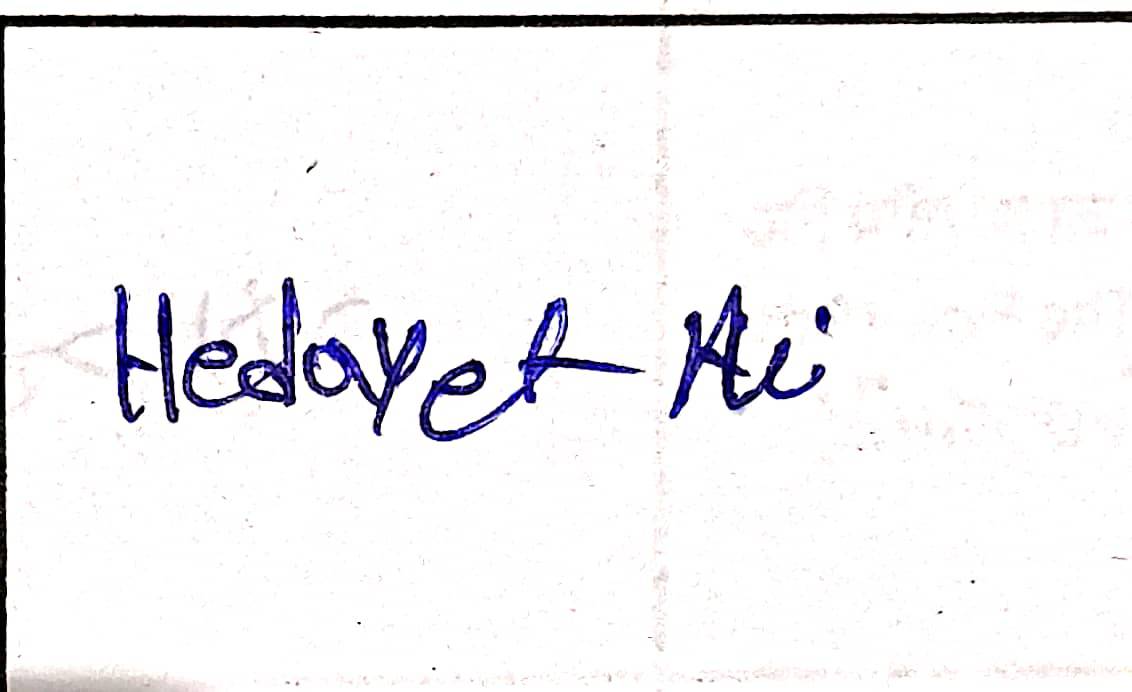 Hedayet Ali